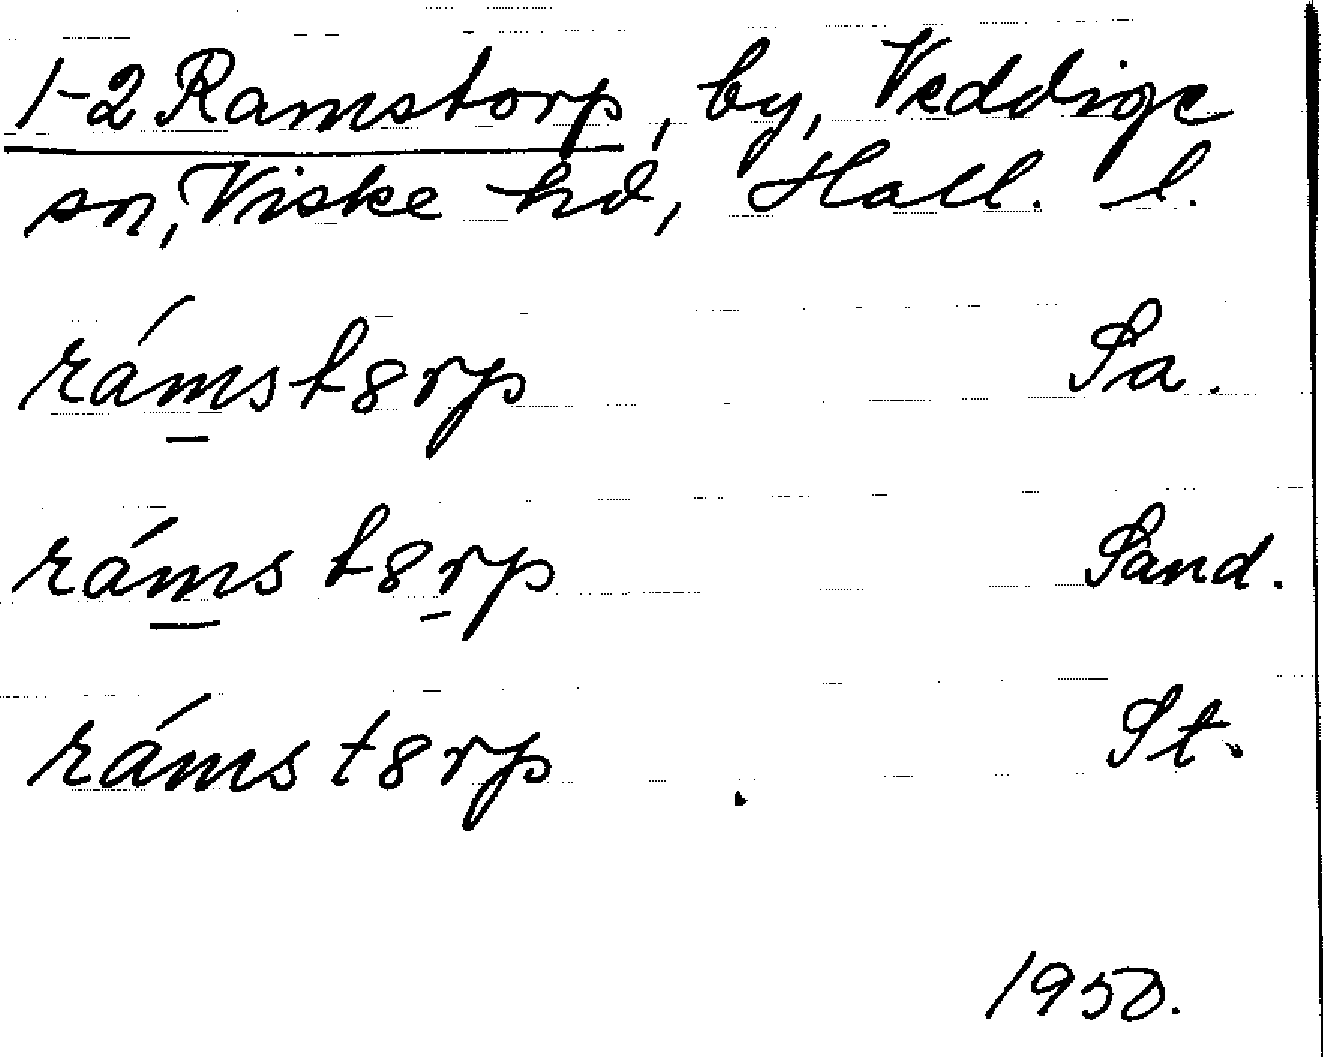 1-2 Ramstorp, by, Veddige
sn, Viske hd, Hall. l.
rámst8rp Sa.
ráms t8rp Sand.
ráms t8rp St.
1950.